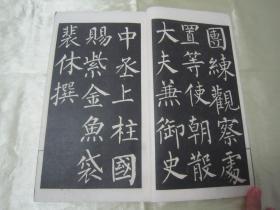 團練觀察處
置等使朝散
大夫兼御史
中丞上柱國
賜紫金魚袋
裴休撰